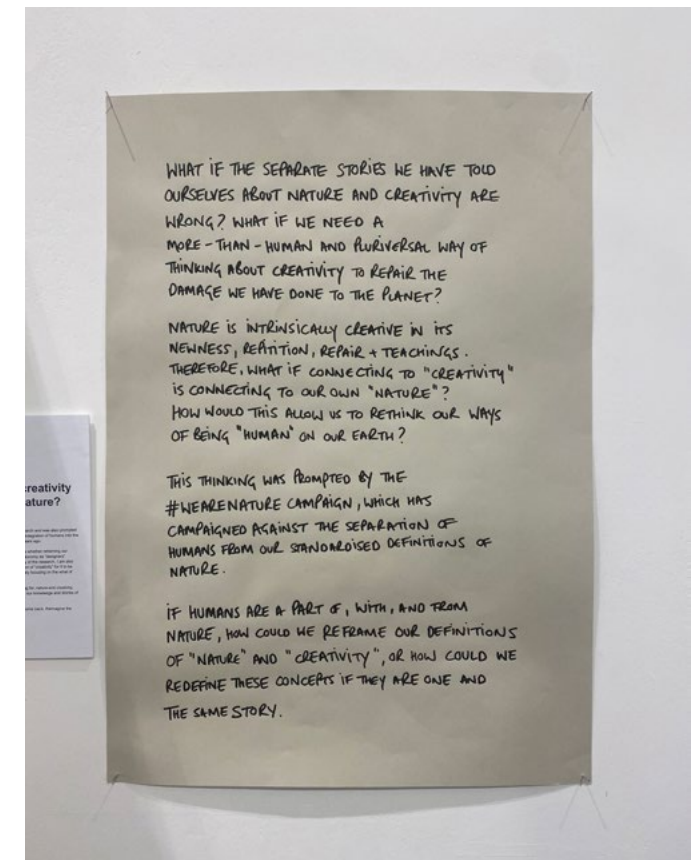 WHAT IF THE SEPARATE STORIES WE HAVE TOLD
OURSELVES ABOUT NATURE AND CREATIVITY ARE
WRONG? WHAT IF WE NEED A
MORE-THAN-HUMAN AND PLURIVERSAL WAY OF
THINKING ABOUT CREATIVITY TO REPAIR THE
DAMAGE WE HAVE DONE TO THE PLANET?
NATURE IS INTRINSICALLY CREATIVE IN ITS
NEWNESS, REPITITION, REPAIR + TEACHINGS.
THEREFORE, WHAT IF CONNECTING TO "CREATIVITY"
IS CONNECTING TO OUR OWN "NATURE"?
HOW WOULD THIS ALLOW US TO RETHINK OUR WAYS
OF BEING "HUMAN" ON OUR EARTH?
THIS THINKING WAS PROMPTED BY THE
#WEARENATURE CAMPAIGN, WHICH HAS
CAMPAIGNED AGAINST THE SEPARATION OF
HUMANS FROM OUR STANDARDISED DEFINITIONS OF
NATURE.
IF HUMANS ARE A PART OF, WITH, AND FROM
NATURE, HOW COULD WE REFRAME OUR DEFINITIONS
OF "NATURE" AND "CREATIVITY", OR HOW COULD WE
REDEFINE THESE CONCEPTS IF THEY ARE ONE AND
THE SAME STORY.
creativity
ature?